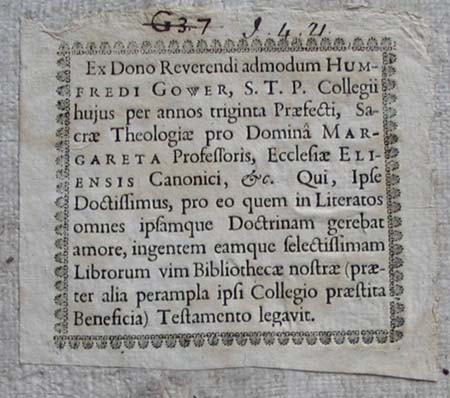 G 3.7 J. 4. 21.
Ex Dono Reverendi admodum HUM-
FREDI GOWER, S. T. P. Collegii
hujus per annos triginta Præfecti, Sa-
cræ Theologiæ pro Dominâ MAR-
GARETA Professoris, Ecclesiæ ELI-
ENSIS Canonici, &c. Qui, Ipse
Doctissimus, pro eo quem in Literatos
omnes ipsamque Doctrinam gerebat
amore, ingentem eamque selectissimam
Librorum vim Bibliothecæ nostræ (præ-
ter alia perampla ipsi Collegio præstita
Beneficia) Testamento legavit.